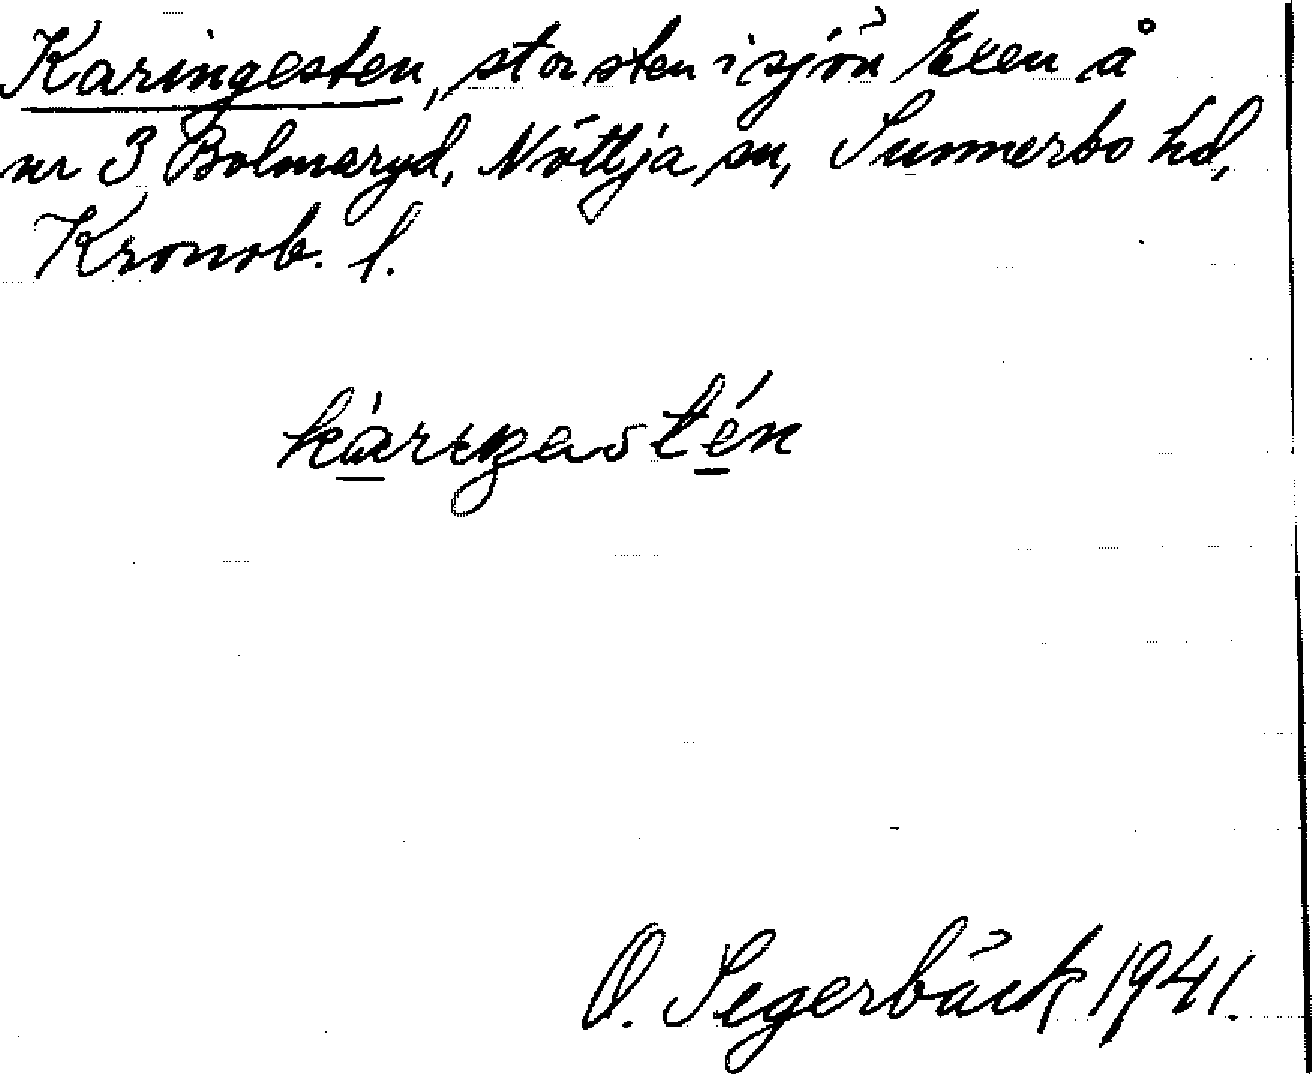 Karingesten, stor sten i sjön Exen å
nr 3 Bolmaryd, Nöttja sn, Sunnerbo hd,
Kronob. l.
O. Segerbäck 1941.